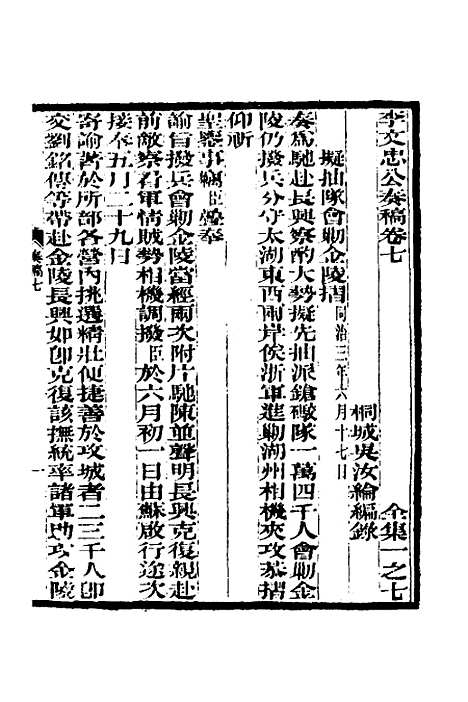 李文忠公奏稿卷七 全集一之七
桐城吳汝綸編錄
擬抽隊會勦金陵摺同治三年六月十七日
奏爲馳赴長興察酌大勢擬先抽派鎗礮隊一萬四千人會勦金
陵仍撥兵分守太湖東西兩岸俟浙軍進勦湖州相機夾攻恭摺
仰祈
聖鑒事竊臣疊奉
諭旨撥兵會勦金陵當經兩次附片馳陳並聲明長興克復親赴
前敵察看軍情賊勢相機調撥臣於六月初一日由蘇啟行途次
接奉五月二十九日
寄諭著於所部各營內挑選精壯便捷善於攻城者二三千人卽
交劉銘傳等帶赴金陵長興如卽克復該撫統率諸軍助攻金陵
奏稿七
一